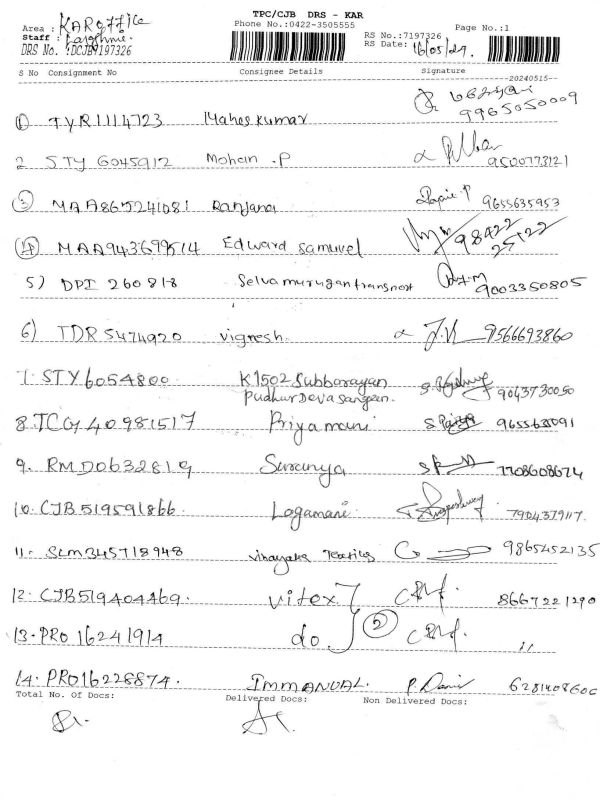 TPC/CJB DRS - KAR
Area : KAR office Phone No.:0422-3505555 Page No.:1
Staff : RS No.:7197326
DRS No. :DCJB7197326 RS Date: 16/05/24.
S No Consignment No Consignee Details Signature
20240515
1 TYR1114723 Mahes kumar 9965050009
2 STY 6045912 Mohan .P 9500773121
3 MAA865241081 Ranjana 9655635953
4 MAA943699514 Edward samuvel 98422 25122
5) DPI 260818 Selva murugan transport 9003350805
6) TDR5474920 vignesh. 9566693860
7. STY6054800 K1502 Subbarayan 9043730050
Pudhur Devasangam.
8. TCG40981517 Priyamani 9655635091
9. RMD0632819 Saranya 7708608674
10. CJB519591866 Logamani 7904379117.
11. SLM345718948 vinayaka Textiles 9865452135
12. CJB519404469. vitex 8667221290
13. PRO16241914 do 2 "
14. PRO16228874. IMMANUAL. 628140860
Total No. Of Docs: Delivered Docs: Non Delivered Docs: